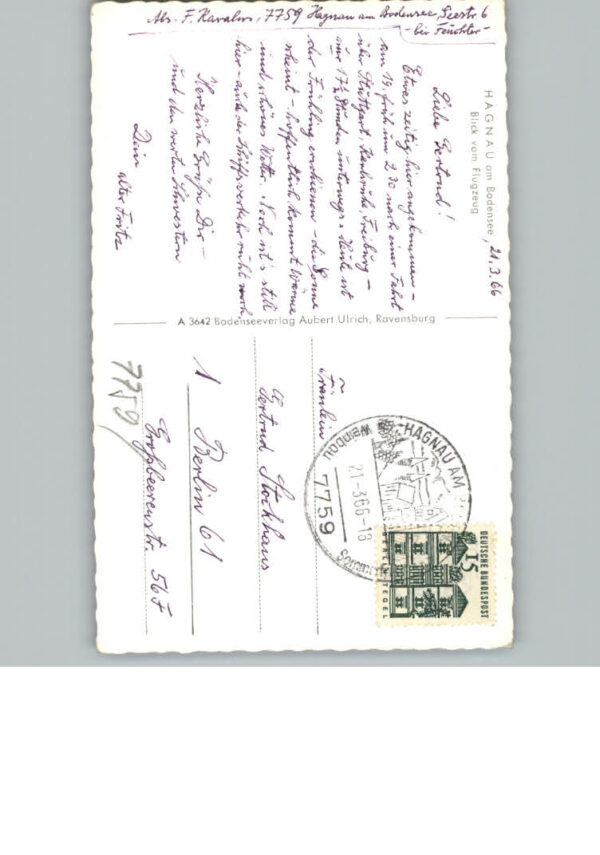 Abs. F. Kavalns, 7759 Hagnau am Bodensee, Seestr. 6
- bei Feuchter -
HAGNAU am Bodensee, 21.3.66
Blick vom Flugzeug
Liebe Gertrud!
Etwas zeitig hier angekommen -
am 19. früh um 2.30 nach einer Fahrt
über Stuttgart, Karlsruhe, Freiburg -
war 17½ Stunden unterwegs. Heute ist
der Frühling erschienen - die Sonne
scheint - hoffentlich kommt Wärme
und schönes Wetter. Noch ist's still
hier - auch der Schiffsverkehr ruht noch.
Herzliche Grüße Dir -
und den werten Schwestern
Dein
alter Fritz
A 3642 Bodenseeverlag Aubert Ulrich, Ravensburg
Fräulein
Gertrud Stockhaus
1 Berlin 61
Großbeerenstr. 56F
7759
HAGNAU AM
Weinbau
21.-3.66-18
7759
Sommer
DEUTSCHE BUNDESPOST
15
TEGEL